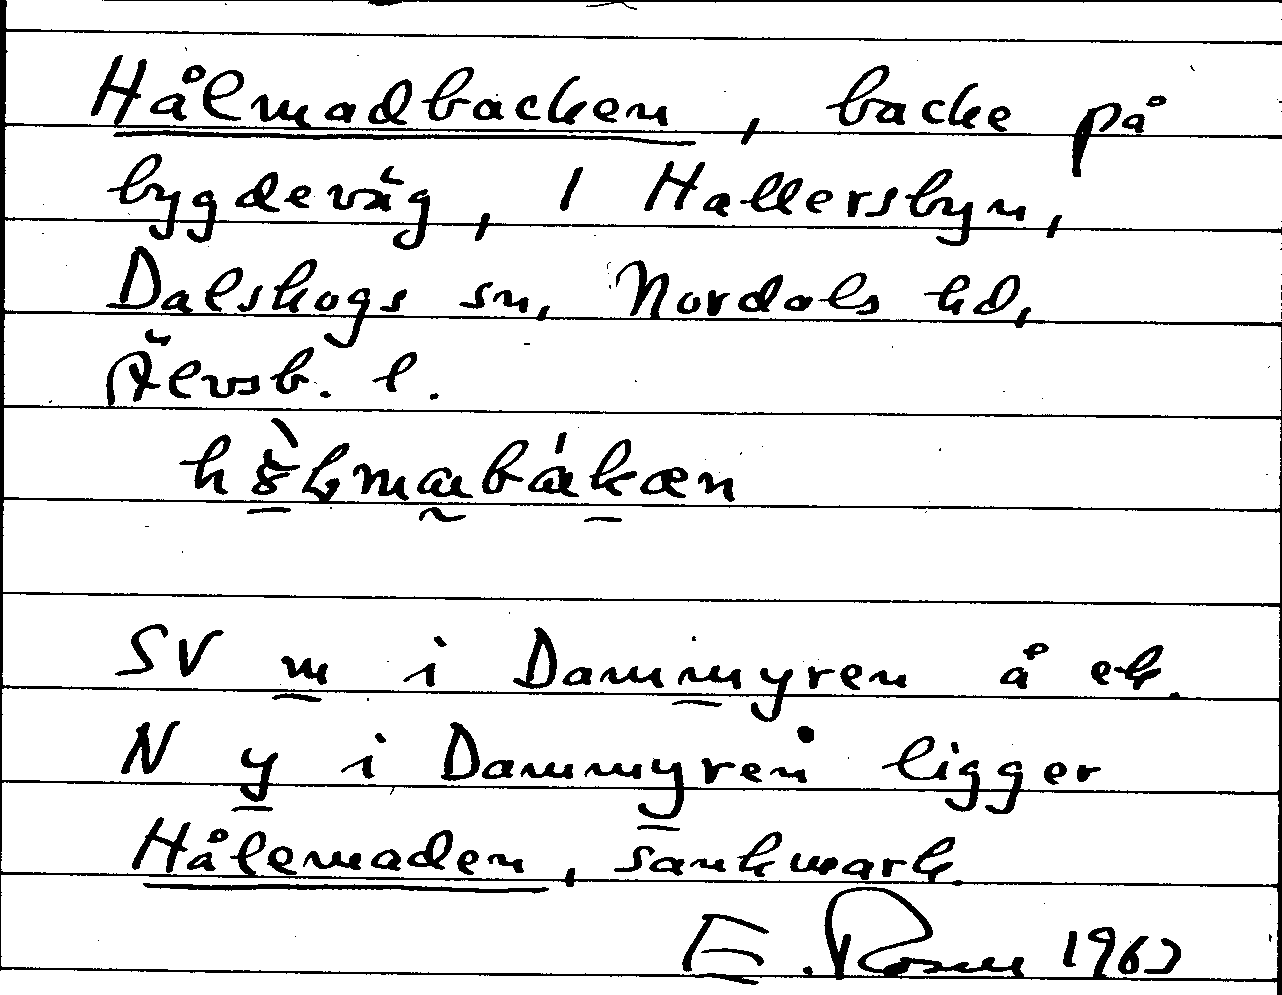 Hålmadbacken, backe på
bygdeväg, 1 Hallersbyn,
Dalskogs sn, Nordals hd,
Älvsb. l.
SV m i Dammyren å ek.
N y i Dammyren ligger
Hålemaden, sankmark.
E. Rosen 1963